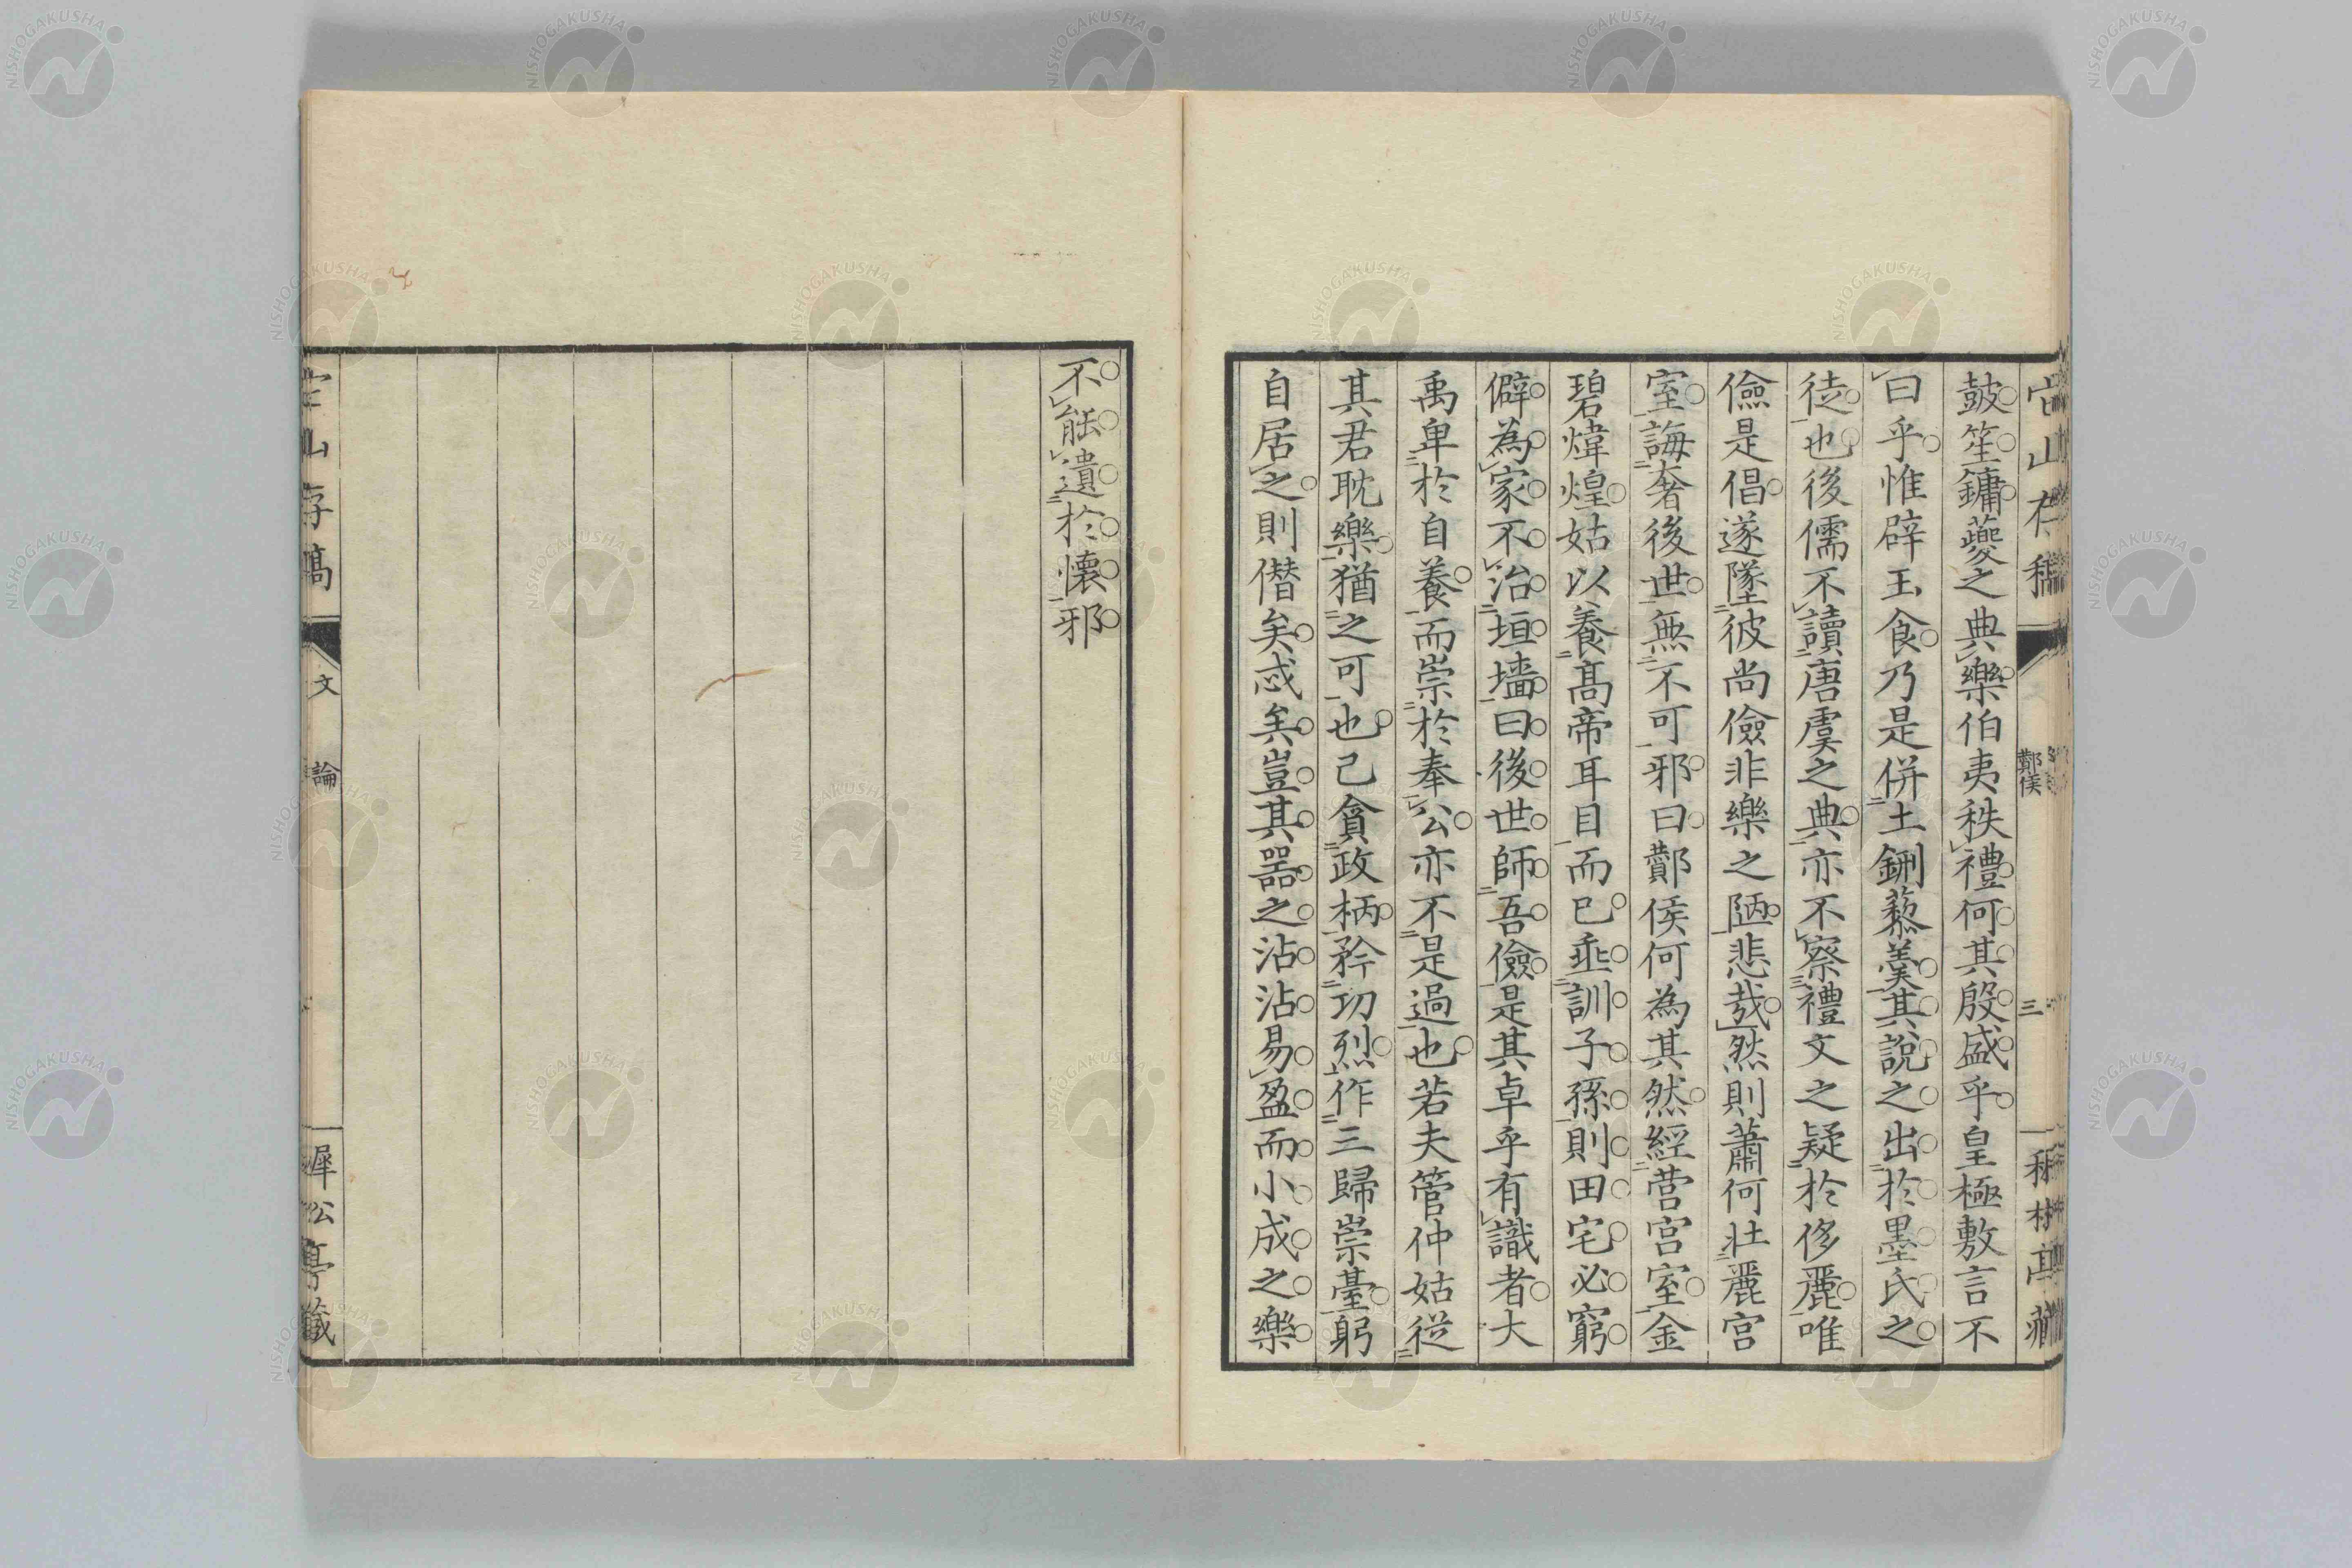 鼓笙鏞夔之典樂伯夷秩禮何其殷盛乎皇極敷言不
曰乎惟辟玉食乃是併土鉶藜羹其說之出於墨氏之
徒也後儒不讀唐虞之典亦不察禮文之疑於侈麗唯
儉是倡遂墜彼尚儉非樂之陋悲哉然則蕭何壮麗宮
室誨奢後世無不可邪曰酇侯何為其然經营宮室金
碧煒煌姑以養髙帝耳目而已垂訓子孫則田宅必窮
僻為家不治垣墻曰後世師吾儉是其卓乎有識者大
禹卑於自養而崇於奉公亦不是過也若夫管仲姑從
其君耽樂猶之可也己貪政柄矜功烈作三歸崇臺躬
自居之則僭矣忒矣豈其器之沾沾易盈而小成之樂
不能遺於懷邪
文
論
犀公亭蔵
酇侯
三
NISHOGAKUSHA